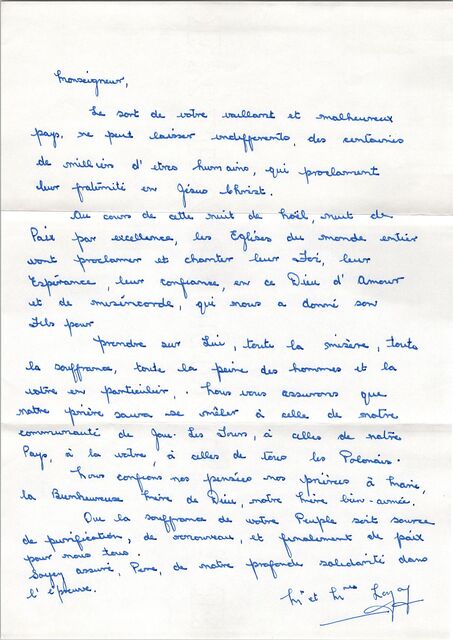 Monseigneur,
Le sort de votre vaillant et malheureux
pays, ne peut laisser indifférents, des centaines
de milliers d'êtres humains, qui proclament
leur fraternité en Jésus Christ.
Au cours de cette nuit de Noël, nuit de
Paix par excellence, les Eglises du monde entier
vont proclamer et chanter leur Foi, leur
Espérance, leur confiance, en ce Dieu d'Amour
et de miséricorde, qui nous a donné son
Fils pour
prendre sur Lui, toute la misère, toute
la souffrance, toute la peine des hommes et la
vôtre en particulier. Nous vous assurons que
notre prière saura se mêler à celle de notre
communauté de Joué-Les-Tours, à celles de notre
Pays, à la vôtre, à celles de tous les Polonais.
Nous confions nos pensées nos prières à Marie,
la Bienheureuse Mère de Dieu, notre Mère bien-aimée.
Que la souffrance de votre Peuple soit source
de purification, de renouveau, et finalement de paix
pour nous tous.
Soyez assuré, Père, de notre profonde solidarité dans
l'épreuve.
Mr et Mme